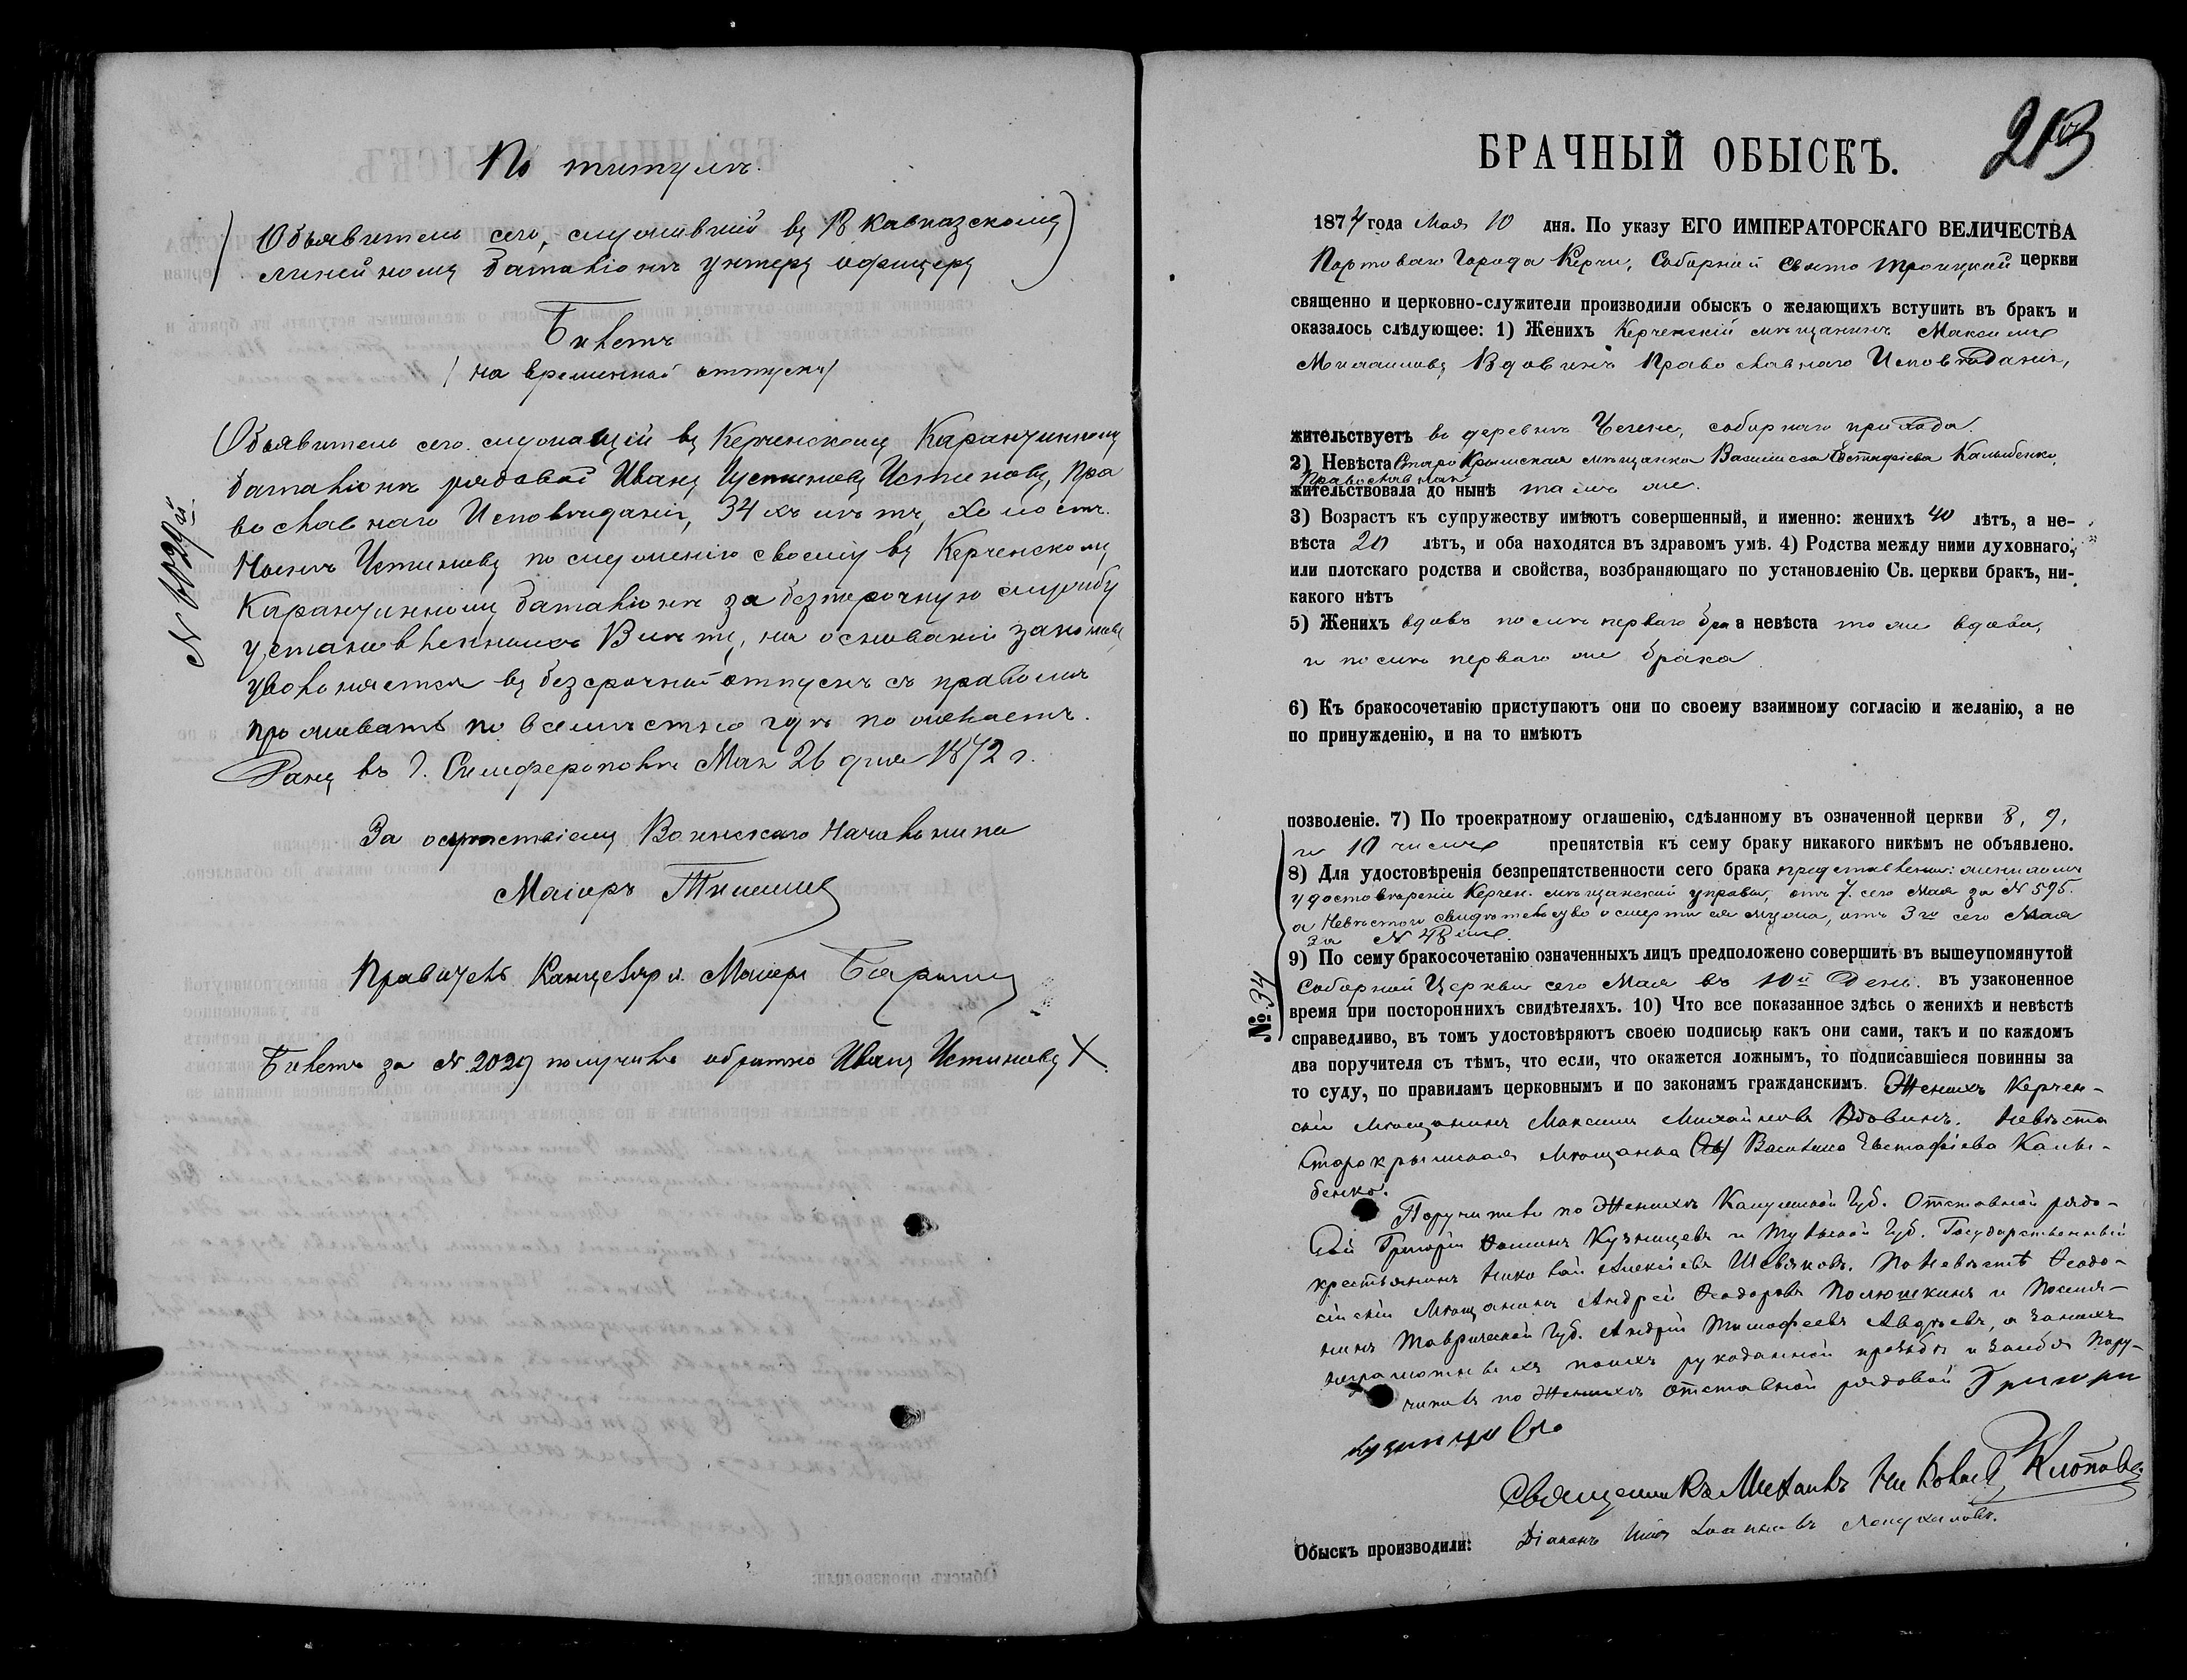 По титулѣ.
(Объявитель сего, служившій въ 13 Кавказскому
линейному баталіонѣ унтеръ офицеръ)
Билетъ
(на временной отпускъ)
№ 2029й.
Объявитель сего служащій въ Керченскому Карантинному
баталіонѣ рядовой Иванъ Устиновъ Истиновъ, Пра
вославнаго Исповѣданія, 34хъ лѣтъ, холостъ.
Нынѣ Истиновъ по служенію своему въ Керченскому
Карантинному баталіонѣ за безпорочную службу
установленныхъ лѣтъ, на основаніи законовъ
увольняется въ безсрочной отпускъ съ правомъ
проживать по всеместно гдѣ пожелаетъ.
Данъ въ г. Симферополѣ Мая 26 дня 1872 г.
За отсутствіемъ Воинскаго Начальника
Маіоръ
Правитель Канцеляріи Маіоръ
Билетъ за № 2029 получилъ обратно Иванъ Истиновъ X
213
БРАЧНЫЙ ОБЫСКЪ.
1874 года Мая 10 дня. По указу ЕГО ИМПЕРАТОРСКАГО ВЕЛИЧЕСТВА
Портоваго Города Керчи, Соборной Свято Троицкой церкви
священно и церковно-служители производили обыскъ о желающихъ вступить въ бракъ и
оказалось слѣдующее: 1) Женихъ Керченскій мѣщанинъ Максимъ
Михаиловъ Вдовинъ Православнаго Исповѣданія,
жительствуетъ въ деревнѣ соборнаго прихода.
2) Невѣста Старо Крымская мѣщанка Василиса Евстафіева Калыбенко,
Православная
жительствовала до нынѣ тамъ же.
3) Возрастъ къ супружеству имѣютъ совершенный, и именно: женихъ 40 лѣтъ, а не-
вѣста 20 лѣтъ, и оба находятся въ здравомъ умѣ. 4) Родства между ними духовнаго,
или плотскаго родства и свойства, возбраняющаго по установленію Св. церкви бракъ, ни-
какого нѣтъ
5) Женихъ вдовъ послѣ перваго бра а невѣста тоже вдова,
и послѣ перваго же брака.
6) Къ бракосочетанію приступаютъ они по своему взаимному согласію и желанію, а не
по принужденію, и на то имѣютъ
позволеніе. 7) По троекратному оглашенію, сдѣланному въ означенной церкви 8, 9,
и 10 числѣ препятствія къ сему браку никакого никѣмъ не объявлено.
8) Для удостовѣренія безпрепятственности сего брака представлены: женихомъ
удостовѣреніе Керчен. мѣщанской управы, отъ 7 сего Мая за № 595.
а Невѣстою свидѣтельство о смерти ея мужа, отъ 3го сего Мая
за № 48
№ 34
9) По сему бракосочетанію означенныхъ лицъ предположено совершить въ вышеупомянутой
Соборной Церкви сего Мая въ 10й День. въ узаконенное
время при постороннихъ свидѣтеляхъ. 10) Что все показанное здѣсь о женихѣ и невѣстѣ
справедливо, въ томъ удостовѣряютъ своею подписью какъ они сами, такъ и по каждомъ
два поручителя съ тѣмъ, что если, что окажется ложнымъ, то подписавшіеся повинны за
то суду, по правиламъ церковнымъ и по законамъ гражданскимъ. Женихъ Керчен-
скій мѣщанинъ Максимъ Михайловъ Вдовинъ. Невѣста
Старокрымская мѣщанка Василиса Евстафіева Калы-
бенко.
Поручители по Женихѣ Калужской Губ. Отставной рядо-
вой Григорій Фоминъ Кузнецовъ и Тульской Губ. Государственный
крестьянинъ Николай Алексіевъ Шевяковъ. По Невѣстѣ Ѳеодо-
сійскій Мѣщанинъ Андрей Ѳеодоровъ Полюшкинъ и Поселя-
нинъ Таврической Губ. Андрей Тимофеевъ Авдѣевъ, а за нихъ
неграмотныхъ по ихъ рукоданной прозьбѣ и за себя Пору-
читель по Женихѣ отставной рядовой Григори
кузнецовъ
Священникъ Михаилъ
Обыскъ производили: Діаконъ